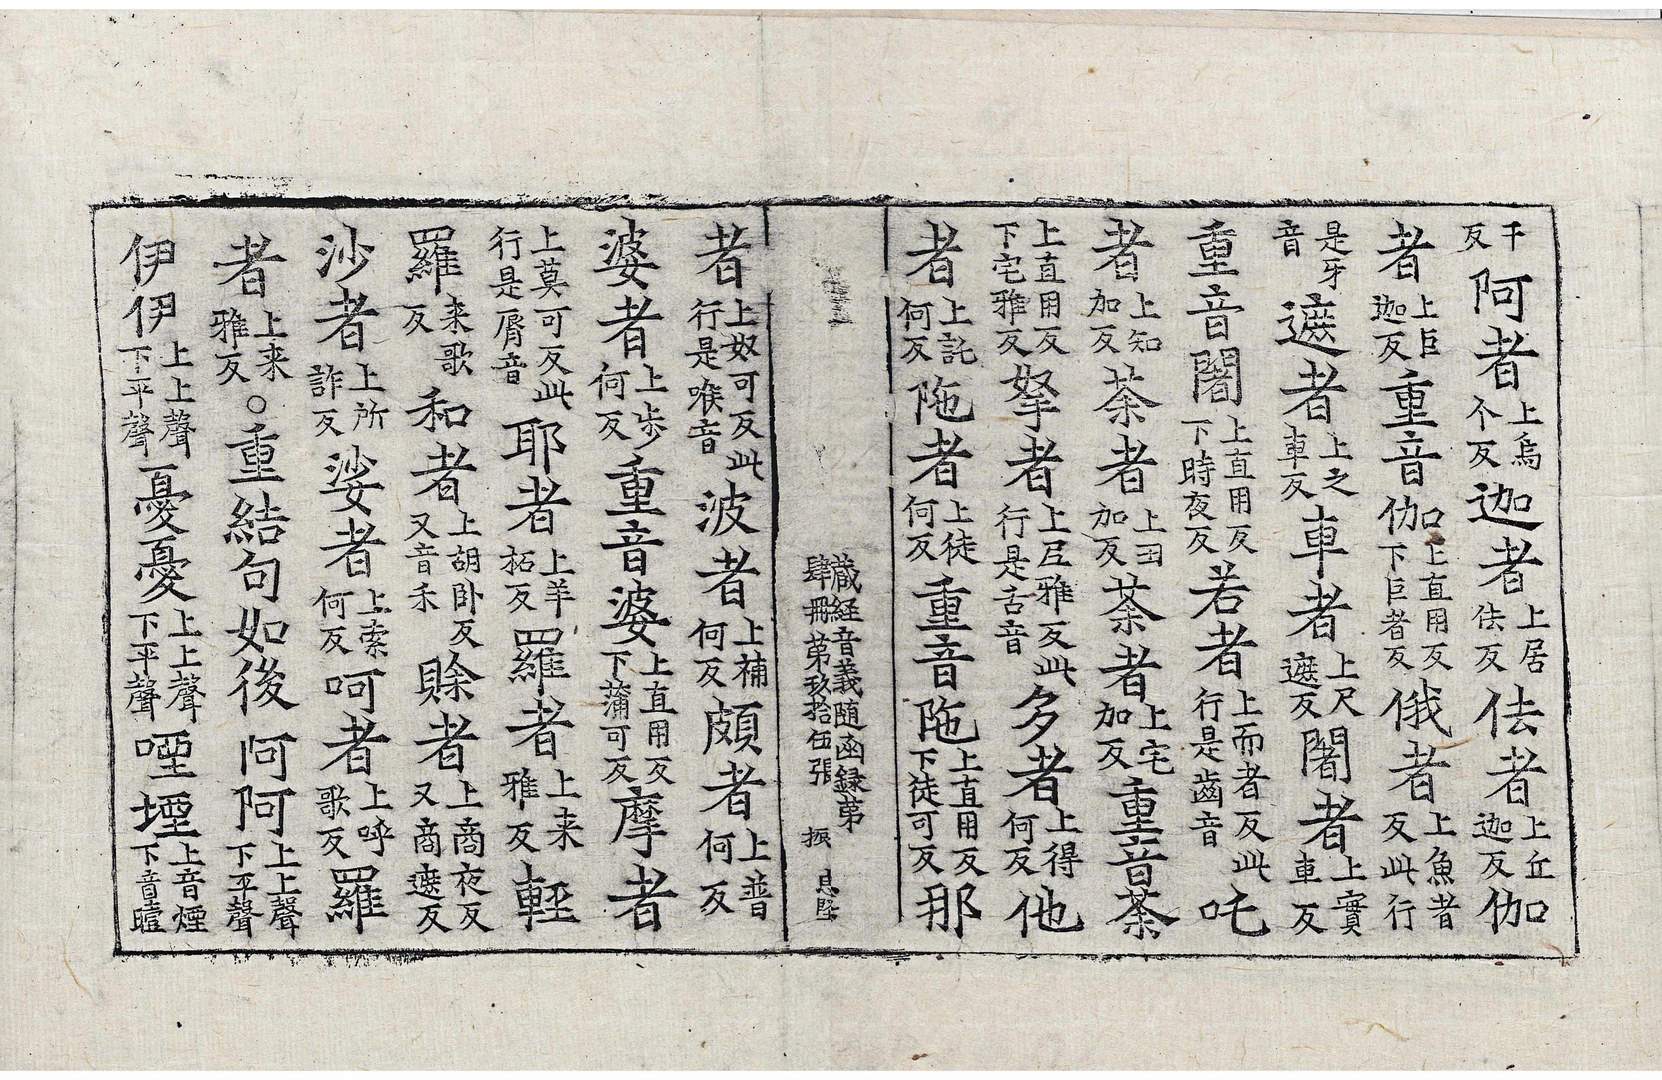 千反阿者上烏个反迦者上居佉反佉者上丘迦反伽
者上巨迦反重音伽上直用反下巨者反俄者上魚者反此行
是牙音遮者上之車反車者上尺遮反闍者上實車反
重音闍上直用反下時夜反若者上而者反此行是齒音吒
者上知加反荼者上丑加反荼者上宅加反重音荼
上直用反下宅雅反拏者上𡰱雅反此行是舌音多者上得何反他
者上託何反陁者上徒何反重音陁上直用反下徒可反那
藏経音義随函録第
肆冊第玖拾伍張 振
者上奴可反此行是喉音波者上補何反頗者上普何反
婆者上步何反重音婆上直用反下蒲可反摩者
上莫可反此行是脣音耶者上羊柘反羅者上来雅反輕
羅来歌反和者上胡卧反又音禾賒者上商夜反又商遮反
沙者上所詐反娑者上索何反呵者上呼歌反羅
者上来雅反○重結句如後阿阿上上聲下平聲
伊伊上上聲下平聲憂憂上上聲下平聲哩堙上音煙下音曀